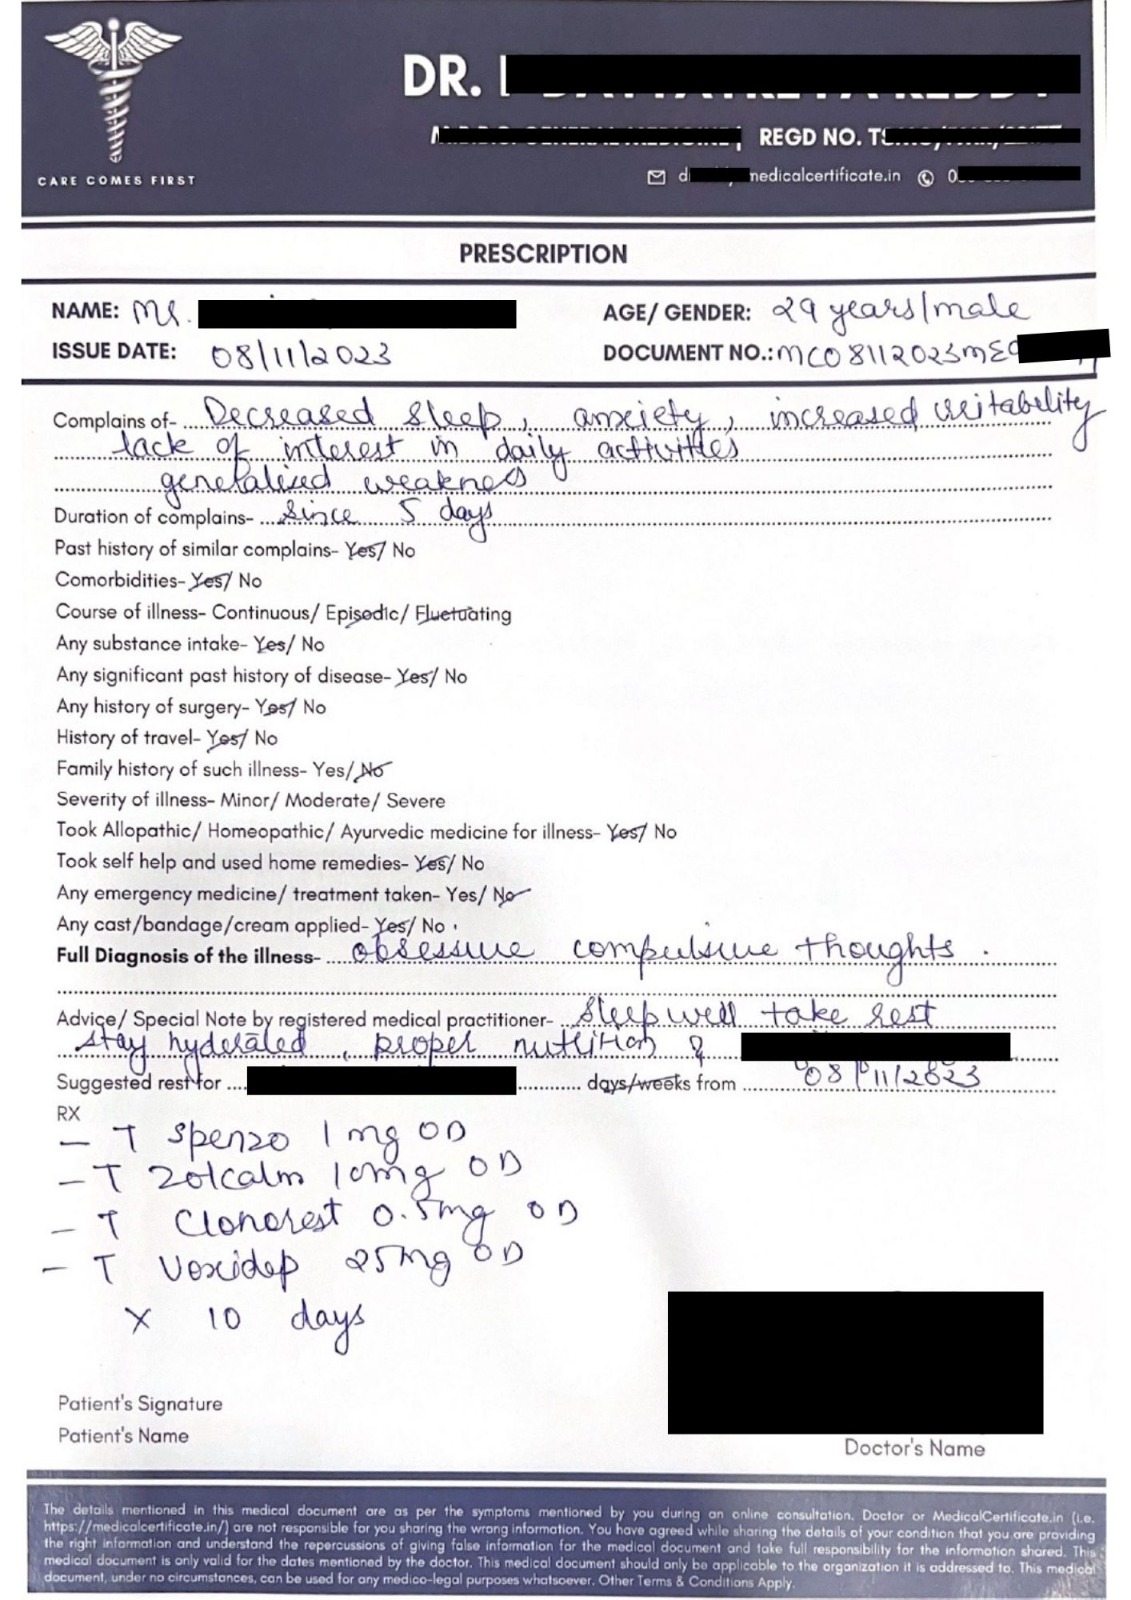 DR.
REGD NO.
medicalcertificate.in
CARE COMES FIRST
PRESCRIPTION
NAME: Mr.
AGE/ GENDER: 29 years/male
ISSUE DATE: 08/11/2023
DOCUMENT NO.: MC08112023ME
Complains of- Decreased sleep, anxiety, increased irritability
lack of interest in daily activities
generalised weakness
Duration of complains- since 5 days
Past history of similar complains- Yes/ No
Comorbidities- Yes/ No
Course of illness- Continuous/ Episodic/ Fluctuating
Any substance intake- Yes/ No
Any significant past history of disease- Yes/ No
Any history of surgery- Yes/ No
History of travel- Yes/ No
Family history of such illness- Yes/ No
Severity of illness- Minor/ Moderate/ Severe
Took Allopathic/ Homeopathic/ Ayurvedic medicine for illness- Yes/ No
Took self help and used home remedies- Yes/ No
Any emergency medicine/ treatment taken- Yes/ No
Any cast/bandage/cream applied- Yes/ No
Full Diagnosis of the illness- obsessive compulsive thoughts.
Advice/ Special Note by registered medical practitioner- sleep well take rest
stay hyderated, proper nutrition &
Suggested rest for days/weeks from 08/11/2023
RX
- T Spenzo 1 mg OD
- T Zolcalm 10mg OD
- T Clonorest 0.5mg OD
- T Voxidep 25mg OD
x 10 days
Patient's Signature
Patient's Name
Doctor's Name
The details mentioned in this medical document are as per the symptoms mentioned by you during an online consultation. Doctor or MedicalCertificate.in (i.e.
https://medicalcertificate.in/) are not responsible for you sharing the wrong information. You have agreed while sharing the details of your condition that you are providing
the right information and understand the repercussions of giving false information for the medical document and take full responsibility for the information shared. This
medical document is only valid for the dates mentioned by the doctor. This medical document should only be applicable to the organization it is addressed to. This medical
document, under no circumstances, can be used for any medico-legal purposes whatsoever. Other Terms & Conditions Apply.